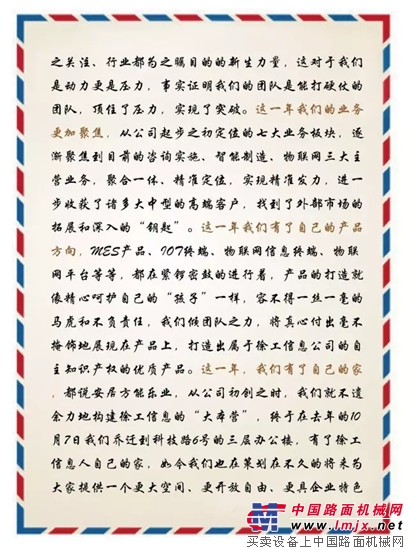 之关注、行业都为之瞩目的的新生力量，这对于我们
是动力更是压力，事实证明我们的团队是能打硬仗的
团队，顶住了压力，实现了突破。这一年我们的业务
更加聚焦，从公司起步之初定位的七大业务板块，逐
渐聚焦到目前的咨询实施、智能制造、物联网三大主
营业务，聚合一体、精准定位，实现精准发力，进一
步收获了诸多大中型的高端客户，找到了外部市场的
拓展和深入的“钥匙”。这一年我们有了自己的产品
方向，MES产品、IOT终端、物联网信息终端、物联
网平台等等，都在紧锣密鼓的进行着，产品的打造就
像精心呵护自己的“孩子”一样，容不得一丝一毫的
马虎和不负责任，我们倾团队之力，将真心付出毫不
掩饰地展现在产品上，打造出属于徐工信息公司的自
主知识产权的优质产品。这一年，我们有了自己的家
，都说安居方能乐业，从公司初创之时，我们就不遗
余力地构建徐工信息的“大本营”，终于在去年的10
月7日我们乔迁到科技路6号的三层办公楼，有了徐工
信息人自己的家，如今我们也在策划在不久的将来为
大家提供一个更大空间、更开放自由、更具企业特色
中国路面机械网
www.lmjx.net
买卖设备上中国路面机械网